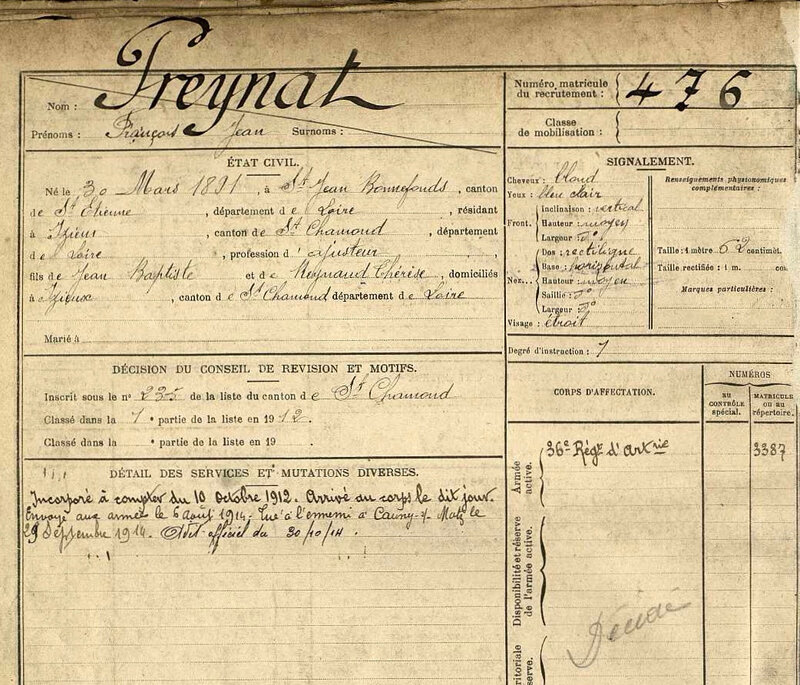 Preynat
Nom :
Prénoms : François Jean Surnoms :
Numéro matricule
du recrutement : 476
Classe
de mobilisation :
ÉTAT CIVIL.
Né le 30 Mars 1891, à St Jean Bonnefonds, canton
de St Etienne, département de Loire, résidant
à Izieux, canton de St Chamond, département
de Loire, profession d'ajusteur
fils de Jean Baptiste et de Reynaud Thérèse, domiciliés
à Izieux, canton de St Chamond département de Loire
Marié à
SIGNALEMENT.
Cheveux : blond
Yeux : bleu clair
Front. Inclinaison : vertical
Hauteur : moyen
Largeur : do
Nez... Dos : rectiligne
Base : horizontal
Hauteur : moyen
Saillie : do
Largeur : do
Visage : étroit
Renseignements physionomiques
complémentaires :
Taille : 1 mètre 62 centimèt.
Taille rectifiée : 1 m. cm.
Marques particulières :
Degré d'instruction :
DÉCISION DU CONSEIL DE REVISION ET MOTIFS.
Inscrit sous le no 235 de la liste du canton de St Chamond
Classé dans la 1e partie de la liste en 1912.
Classé dans la e partie de la liste en 19
CORPS D'AFFECTATION.
NUMÉROS
AU
CONTRÔLE
spécial.
MATRICULE
OU AU
répertoire.
Armée
active.
36e Régt d'Artrie
3387
DÉTAIL DES SERVICES ET MUTATIONS DIVERSES.
Incorporé à compter du 10 Octobre 1912. Arrivé au corps le dit jour.
Envoyé aux armées le 6 Août 1914. Tué à l'ennemi à le
29 Septembre 1914. Avis officiel du 30/10/14.
Disponibilité et réserve
de l'armée active.
Décédé
ritoriale
serve.